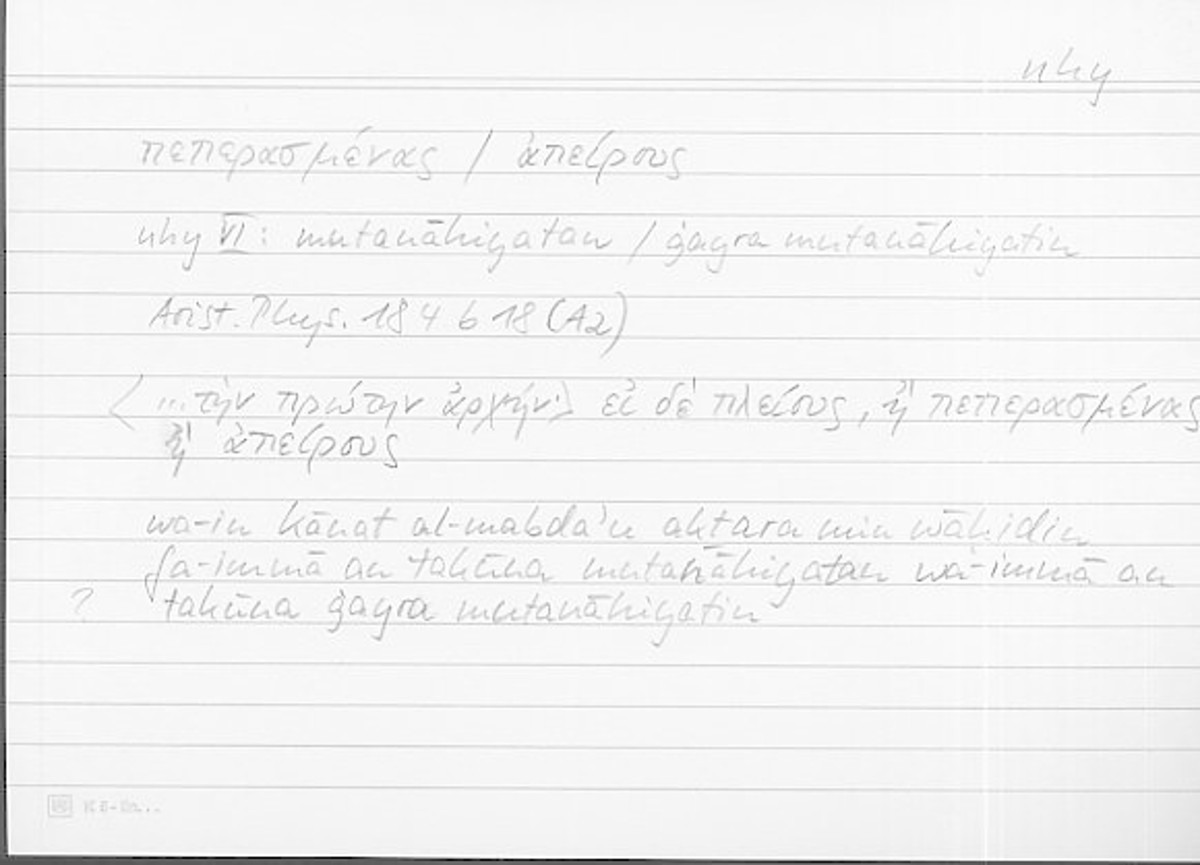 nhy
πεπερασμένας / ἀπείρους
nhy VI: mutanāhiyatan / ġayra mutanāhiyatin
Arist. Phys. 184 b 18 (A2)
<...τὴν πρώτην ἀρχήν·> εἰ δὲ πλείους, ἢ πεπερασμένας
ἢ ἀπείρους
wa-in kānat al-mabda'u aktara min wāḥidin
fa-immā an takūna mutanāhiyatan wa-immā an
? takūna ġayra mutanāhiyatin